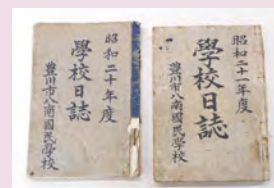 昭和二十一年度
學校日誌
豊川市八南國民學校
昭和二十年度
學校日誌
豊川市八南國民學校